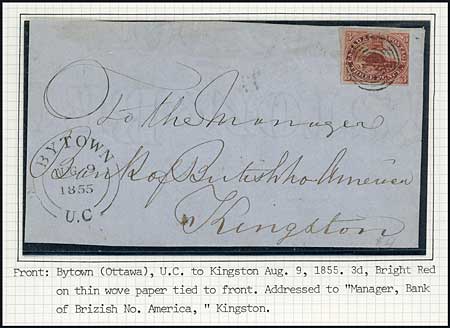 To the Manager
Bank of British No America
Kingston
BYTOWN
1855
U.C
Front: Bytown (Ottawa), U.C. to Kingston Aug. 9, 1855. 3d, Bright Red
on thin wove paper tied to front. Addressed to "Manager, Bank
of Brizish No. America, " Kingston.